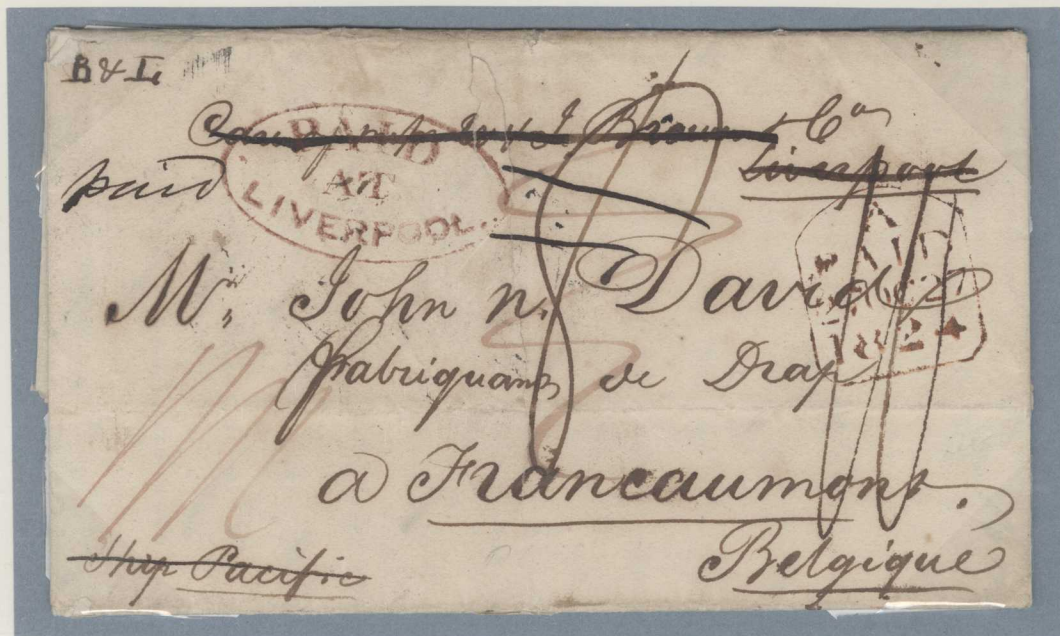 B & L
Brown & Co
Liverpool
paid
PAID
AT
LIVERPOOL.
Mr. John n. David
fabriquant de Drap
a Francaumont.
Belgique
Ship Pacific
PAID
1824